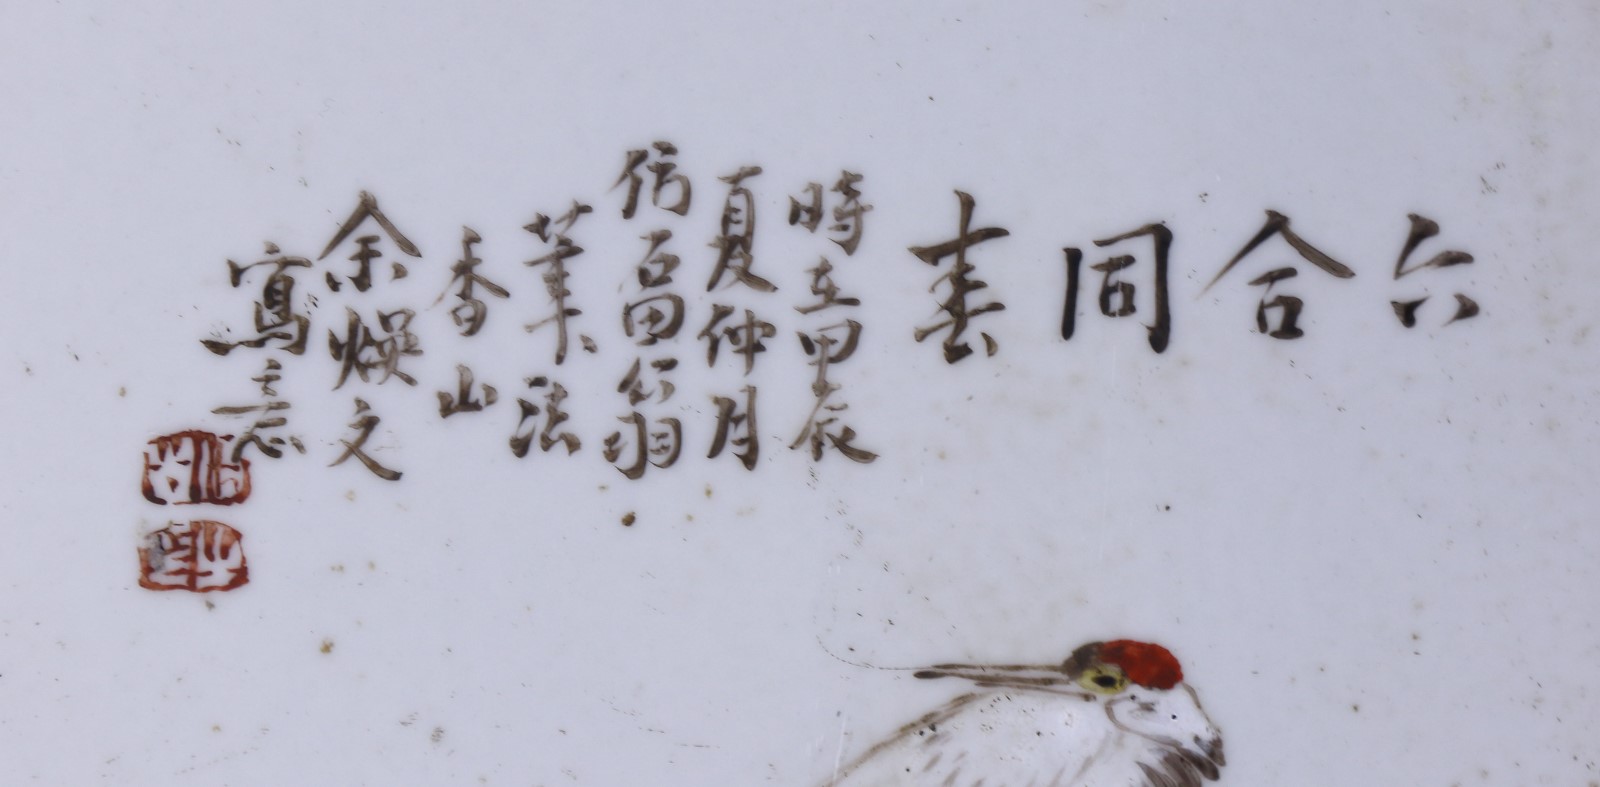 六合同春
時在甲辰
夏仲月
仿石田翁
筆法
香山
余焕文
寫意